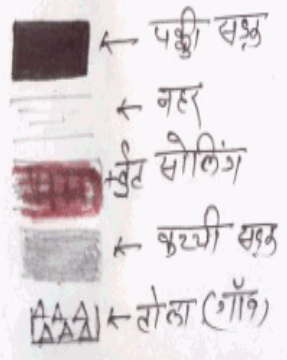 पक्की सड़क
नहर
ईंट सोलिंग
कच्ची सड़क
टोला (गाँव)